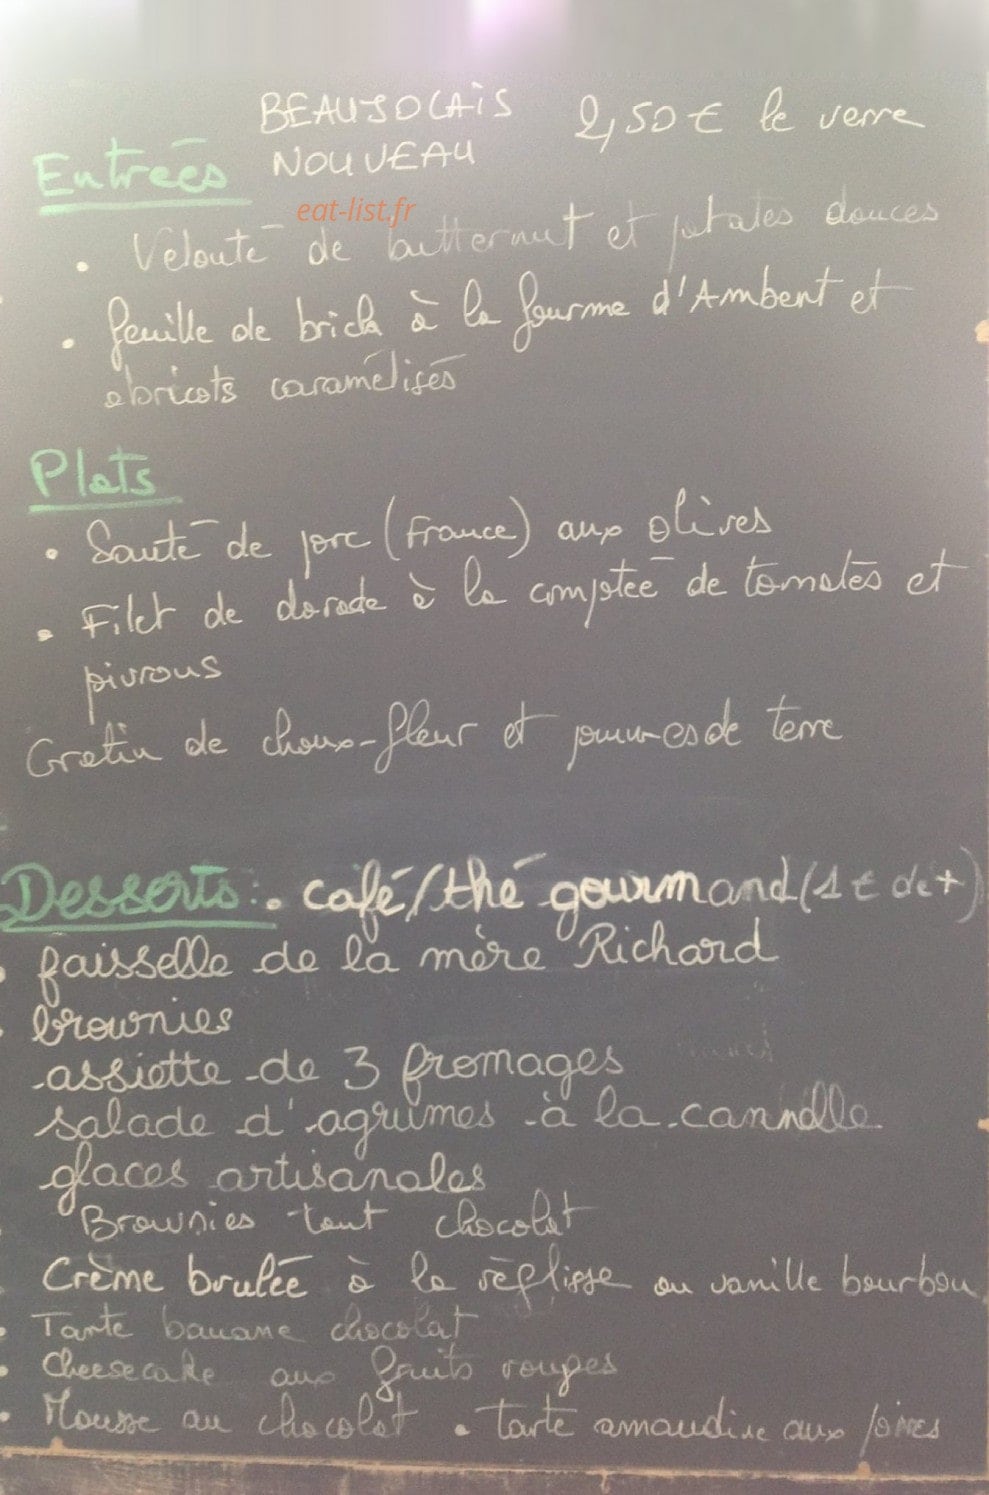 BEAUJOLAIS 2,50€ le verre
NOUVEAU
Entrées
eat-list.fr
• Velouté de butternut et patates douces
• feuille de brick à la fourme d'Ambert et
abricots caramélisés
Plats
• Sauté de porc (France) aux olives
• Filet de dorade à la compotée de tomates et
pivrons
Gratin de choux-fleur et pommes de terre
Desserts: • café/thé gourmand (1€ de +)
• faisselle de la mère Richard
• brownies
assiette de 3 fromages
salade d'agrumes à la cannelle
glaces artisanales
Brownies tout chocolat
Crème brulée à la réglisse ou vanille bourbon
• Tarte banane chocolat
• Cheesecake aux fruits rouges
• Mousse au chocolat • tarte amandine aux poires